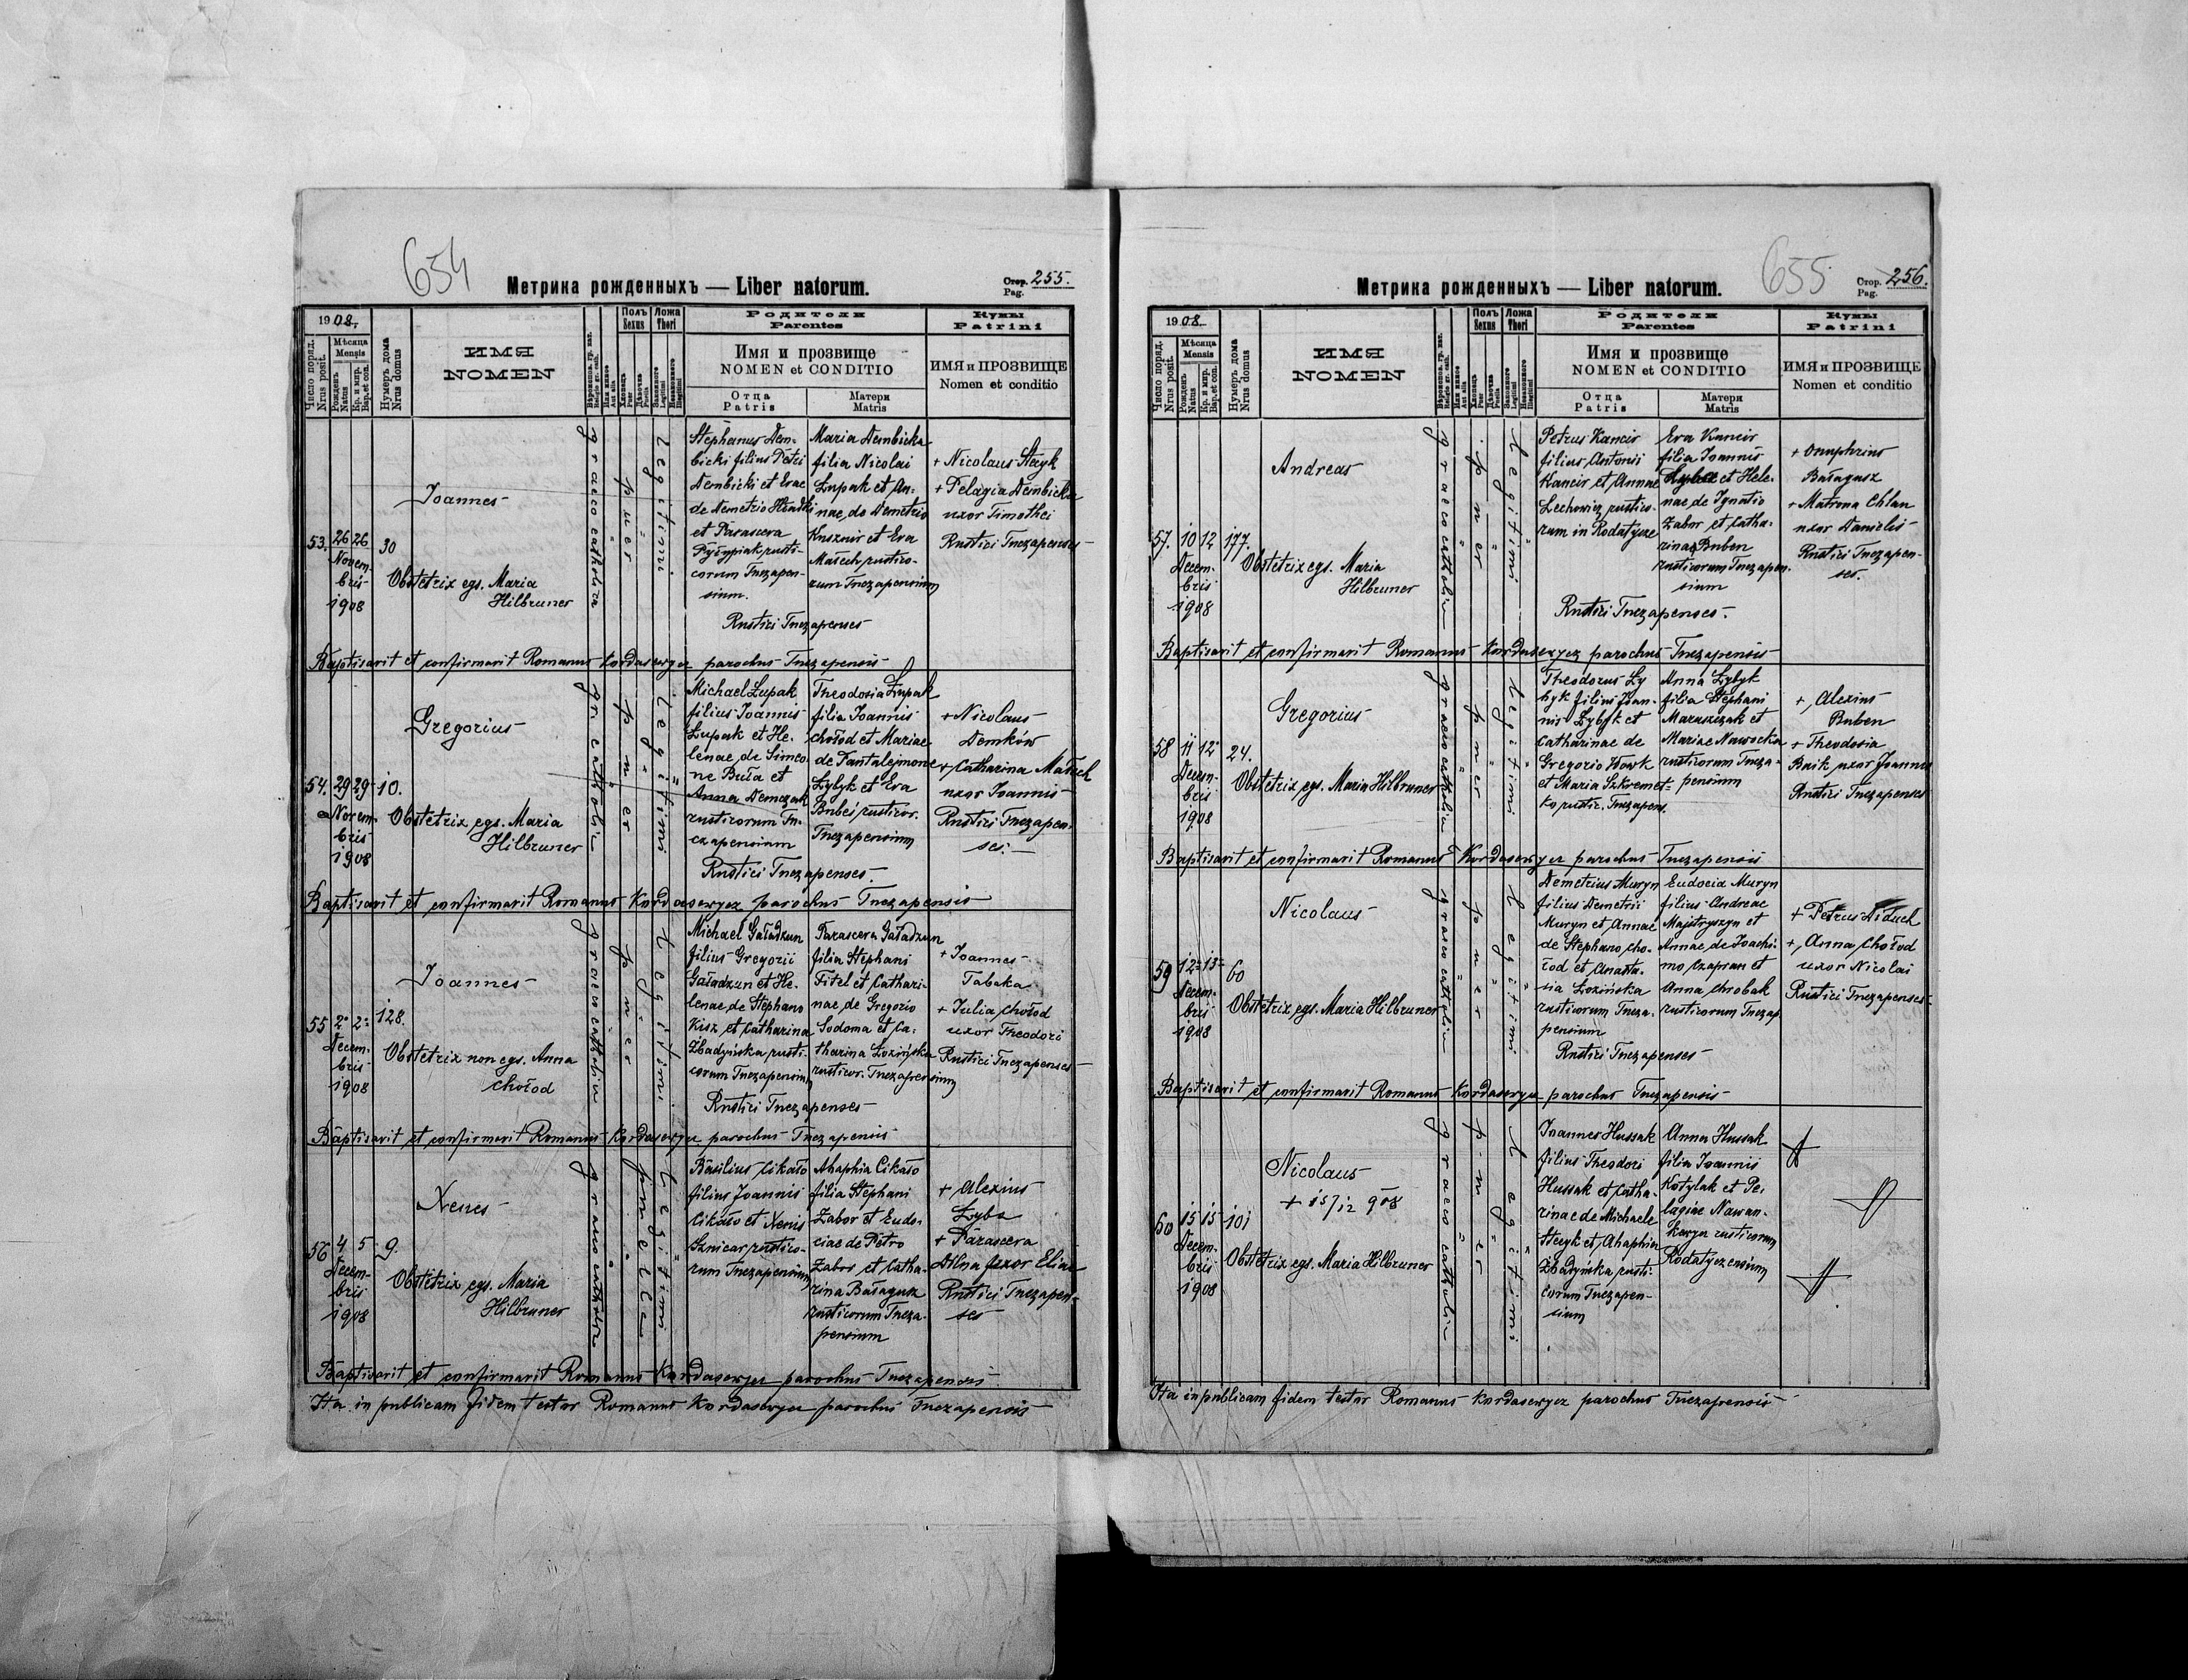 654
Метрика рожденныхъ — Liber natorum.
Стор. Pag. 255.
1908.
Число поряд. Nrus posit.
Мѣсяца Mensis
Рожденъ Natus
Кр. и мир. Bap. et con.
Нумеръ дома Nrus domus
ИМЯ
NOMEN
Полъ Sexus
Ложа Thori
Родители
Parentes
Имя и прозвище
NOMEN et CONDITIO
Отца
Patris
Матери
Matris
Кумы
Patrini
ИМЯ и ПРОЗВИЩЕ
Nomen et conditio
53. 26 26 Novembris 1908
30
Joannes
Obstetrix egs. Maria
Hilbruner
graeco catholica
puer
Legitimi
Stephanus Dem-
bicki filius Petri
Dembicki et Evae
de Demetrio
et Parascera
rusti-
corum Tnczapen-
sium.
Maria Dembicka
filia Nicolai
Łupak et An-
nae, de Demetrio
Kusznir et Eva
Małech rustico-
rum Tnczapensium
Rustici Tnczapenses
+ Nicolaus Stryk
+ Pelagia Dembicka
uxor Timothei
Rustici Tnczapenses
Baptisavit et confirmavit Romanus Kordasewycz parochus Tnczapensis
54. 29 29 Novembris 1908
10.
Gregorius
Obstetrix egs. Maria
Hilbruner
gr. catholica
puer
Legitimi
Michael Łupak
filius Joannis
Łupak et He-
lenae, de Simeo-
ne Buła et
Anna Demczak
rusticorum Tn-
czapensium
Theodosia Łupak
filia Joannis
Chołod et Mariae
de Pantalejmone
Łybyk et Eva
rusticor.
Tnczapensium
Rustici Tnczapenses.
+ Nicolaus
Demków
+ Catharina Małech
uxor Joannis
Rustici Tnczapen-
ses.
Baptisavit et confirmavit Romanus Kordasewycz parochus Tnczapensis
55 2 2 Decembris 1908
128.
Joannes
Obstetrix non egs. Anna
Chołod
graeco catholica
puer
Legitimi
Michael Gaładzun
filius Gregorii
Gaładzun et He-
lenae de Stephano
Kisz et Catharina
Zbadyńska rusti-
corum Tnczapensium
Parascera Gaładzun
filia Stephani
Fitel et Cathari-
nae de Gregorio
Sodoma et Ca-
tharina Łozińska
rusticor. Tnczapensium
Rustici Tnczapenses
+ Joannes
Tabaka
+ Julia Chołod
uxor Theodori
Rustici Tnczapenses
Baptisavit et confirmavit Romanus Kordasewycz parochus Tnczapensis
56 4 5 Decembris 1908
9.
Xenes
Obstetrix egs. Maria
Hilbruner
graeco catholica
puella
Legitimi
Basilius Cikało
filius Joannis
Cikało et Xenis
Sznicar rustico-
rum Tnczapensium
Ahaphia Cikało
filia Stephani
Zabor et Eudo-
ciae de Petro
Zabor et Catha-
rina Bałagusz
rusticorum Tncza-
pensium
+ Alexius
Łyba
+ Parascera
uxor Eliae
Rustici Tnczapen-
ses
Baptisavit et confirmavit Romanus Kordasewycz parochus Tnczapensis
Ita in publicam fidem testor Romanus Kordasewycz parochus Tnczapensis
655
Метрика рожденныхъ — Liber natorum.
Стор. Pag. 256.
1908.
Число поряд. Nrus posit.
Мѣсяца Mensis
Рожденъ Natus
Кр. и мир. Bap. et con.
Нумеръ дома Nrus domus
ИМЯ
NOMEN
Полъ Sexus
Ложа Thori
Родители
Parentes
Имя и прозвище
NOMEN et CONDITIO
Отца
Patris
Матери
Matris
Кумы
Patrini
ИМЯ и ПРОЗВИЩЕ
Nomen et conditio
57. 10 12 Decembris 1908
177.
Andreas
Obstetrix egs. Maria
Hilbruner
graeco catholica
puer
Legitimi
Petrus Kancir
filius Antonii
Kancir et Annae
Lechowicz rustico-
rum in Rodatycze
Eva Kancir
filia Joannis
et Hele-
nae de Ignatio
Zabor et Catha-
rina Buben
rusticorum Tnczapen-
sium
Rustici Tnczapenses.
+ Onuphrius
Bałagusz
+ Matrona Chlan
uxor Danielis
Rustici Tnczapen-
ses.
Baptisavit et confirmavit Romanus Kordasewycz parochus Tnczapensis
58 11 12 Decembris 1908
24.
Gregorius
Obstetrix egs. Maria Hilbruner
graeco catholica
puer
Legitimi
Theodorus Ły-
byk filius Joan-
nis Łybyk et
Catharinae de
Gregorio Wowk
et Maria Szkremet-
ko rustic. Tnczapens.
Anna Łybyk
filia Stephani
Maruszczak et
Mariae Nawocka
rusticorum Tncza-
pensium
+ Alexius
Buben
+ Theodosia
Baik uxor Joannis
Rustici Tnczapenses
Baptisavit et confirmavit Romanus Kordasewycz parochus Tnczapensis
59 12 13 Decembris 1908
60
Nicolaus
Obstetrix egs. Maria Hilbruner
graeco catholica
puer
Legitimi
Demetrius Muryn
filius Demetrii
Muryn et Annae
de Stephano Cho-
łod et Anasta-
sia Łozińska
rusticorum Tncza-
pensium
Eudocia Muryn
filius Andreae
Majstryszyn et
Annae, de Joachi-
mo Czapran et
Anna Chrobak
rusticorum Tnczap
Rustici Tnczapenses
+ Petrus Diduch
+ Anna Chołod
uxor Nicolai
Rustici Tnczapenses
Baptisavit et confirmavit Romanus Kordasewycz parochus Tnczapensis
60 15 15 Decembris 1908
101
Nicolaus
+ 15/12 908
Obstetrix egs. Maria Hilbruner
graeco catholica
puer
Legitimi
Joannes Hussak
filius Theodori
Hussak et Catha-
rinae de Michaele
Stryk et Ahaphia
Zbadyńska rusti-
corum Tnczapen-
sium
Anna Hussak
filia Joannis
Kotylak et Pe-
lagiae Nawan-
kewycz rusticorum
Rodatyczensium
Ita in publicam fidem testor Romanus Kordasewycz parochus Tnczapensis